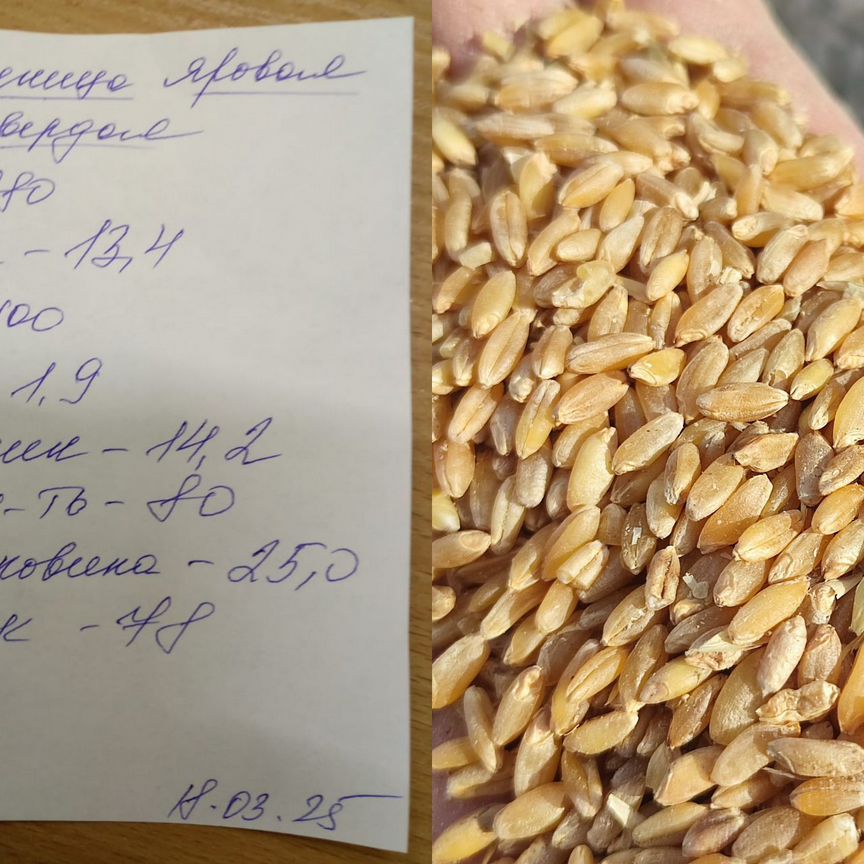 еница яровая
вердая
80
- 13,4
00
1,9
ин - 14,2
с-ть - 80
ковина - 25,0
к - 78
18.03.25